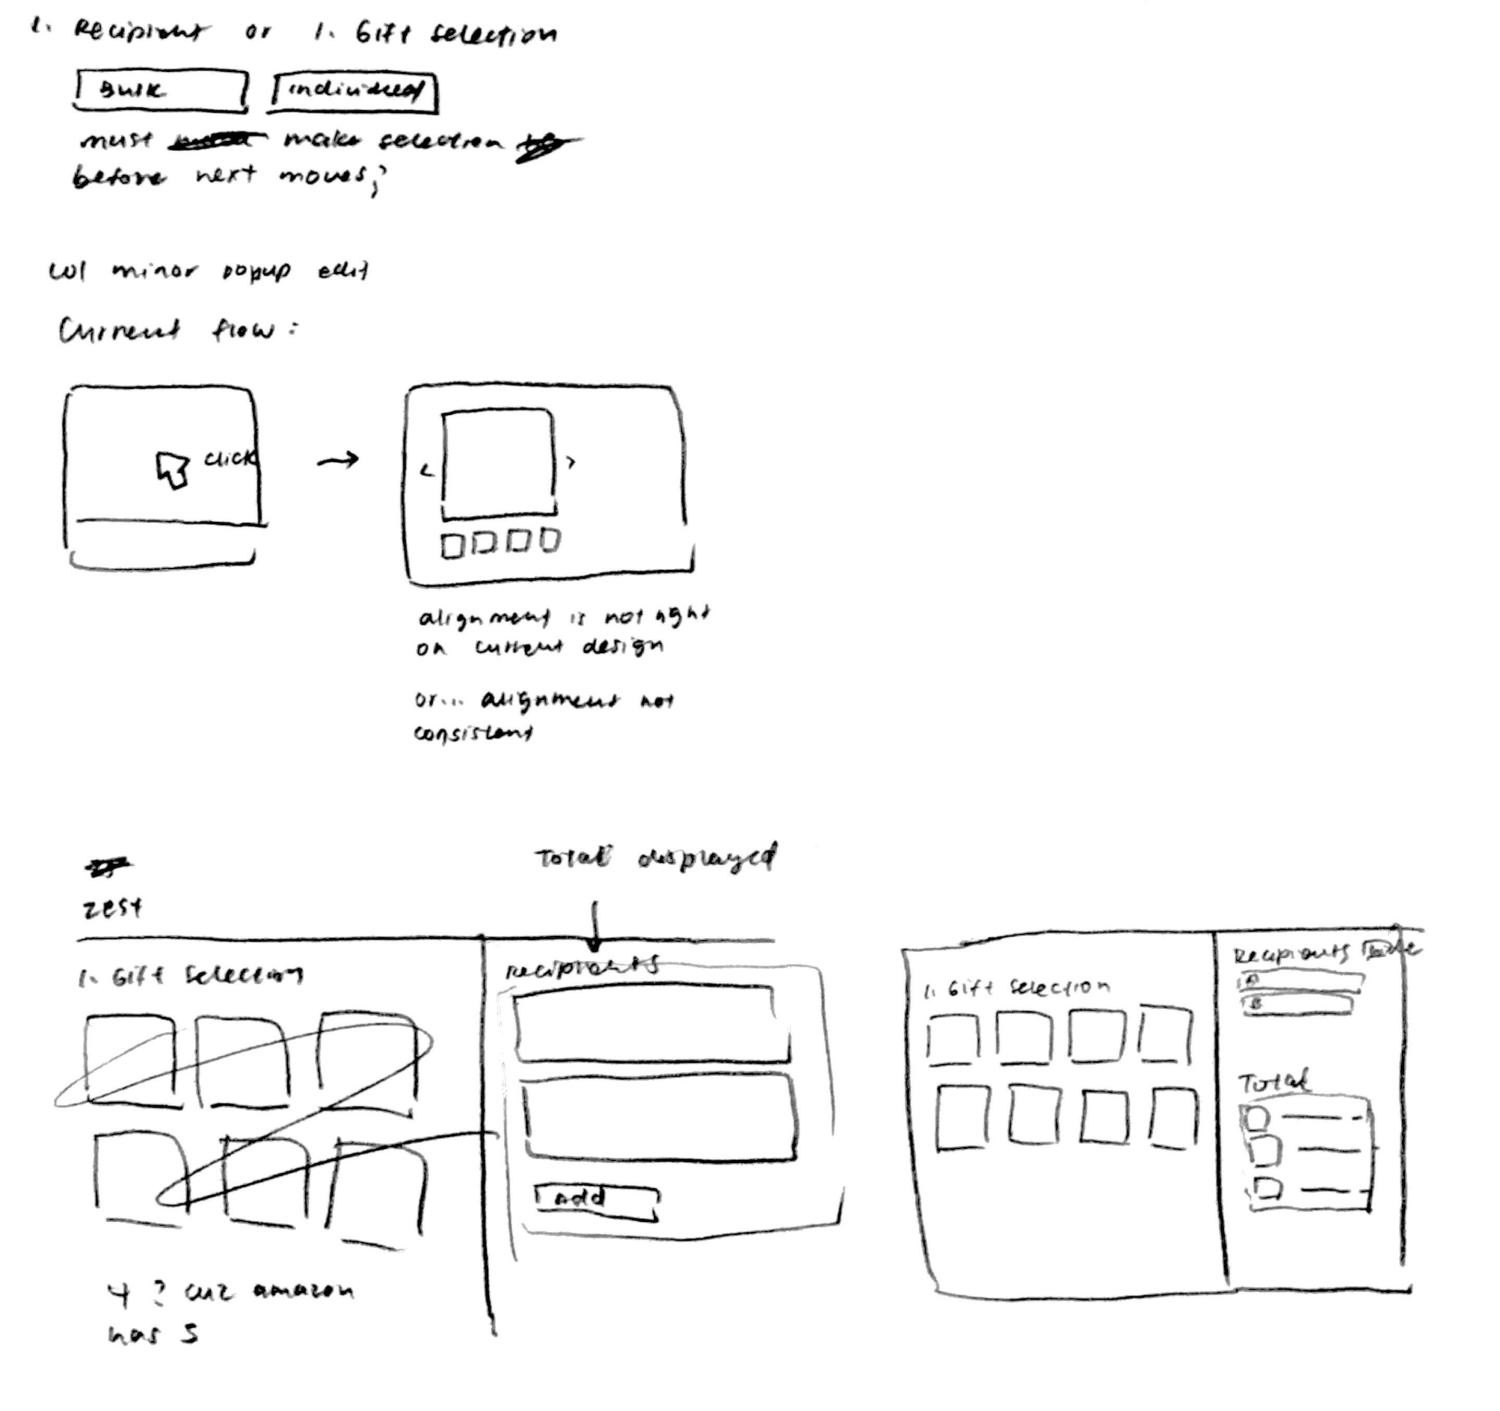 1. Recipient or 1. Gift selection
Bulk
individual
must make selection
before next moves;
w/ minor popup edit
Current flow:
click
< >
alignment is not right
on current design
or... alignment not
consistent
Total displayed
zest
1. Gift selection
Recipients
add
4 ? cuz amazon
has 5
1. Gift selection
Recipients
A
B
Total